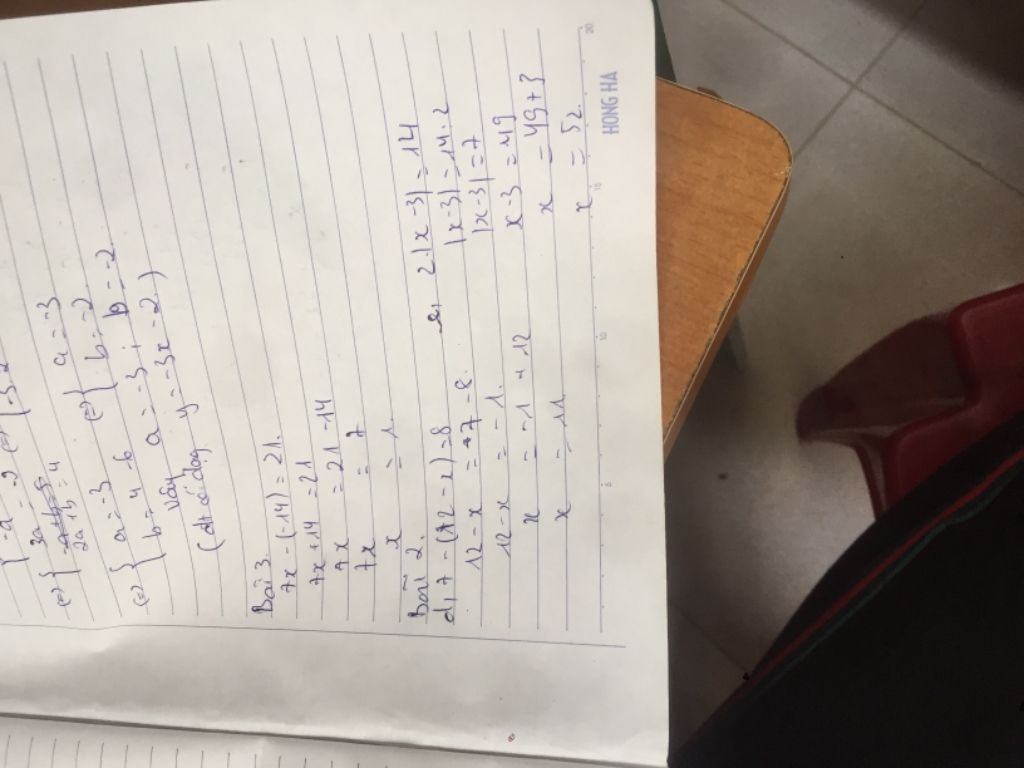 (=) { 3a = -9
2a + b = 4
(=) { a = -3
b = 4 - 6 (=) { a = -3
b = -2
Vậy a = -3 ; b = -2
y = -3x - 2 )
Bài 3.
7x - (-14) = 21.
7x + 14 = 21
7x = 21 - 14
7x = 7
x = 1
Bài 2.
d, 7 - (12 - x) = 8
12 - x = 7 - 8
12 - x = -1.
x = -1 + 12
x = 11
e, 2.|x - 3| = 14
|x - 3| = 14 . 2
|x - 3| = 7
x - 3 = 49
x = 49 + 3
x = 52.
HONG HA
5
10
15
20